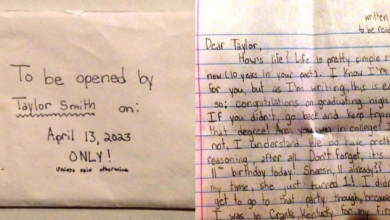 To be opened by
Taylor Smith on:
April 13, 2023
ONLY!
Unless said otherwise
written
to be rea
Dear Taylor,
How's life? Life is pretty simple r
now (10 years in your past). I know I'm
for you, but as I'm writing this is ea
so; congratulations on graduating high
If you didn't, go back and keep tryin
that degree! Are you in college?
not, I understand. We do have pretty
reasoning, after all. Don't forget, it's
11th birthday today! Sheesh, 11 already??
my time, she just turned 1! I did
get to go to that party though, becaus
I was in Kentucky for my firs